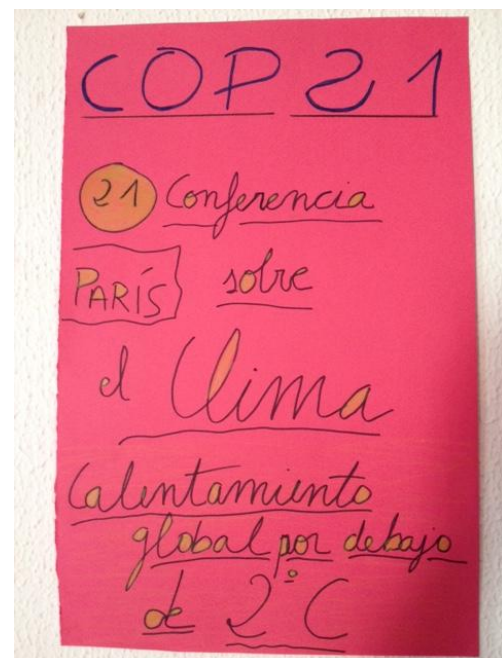 COP 21
21 Conferencia
PARÍS sobre
el Clima
Calentamiento
global por debajo
de 2°C